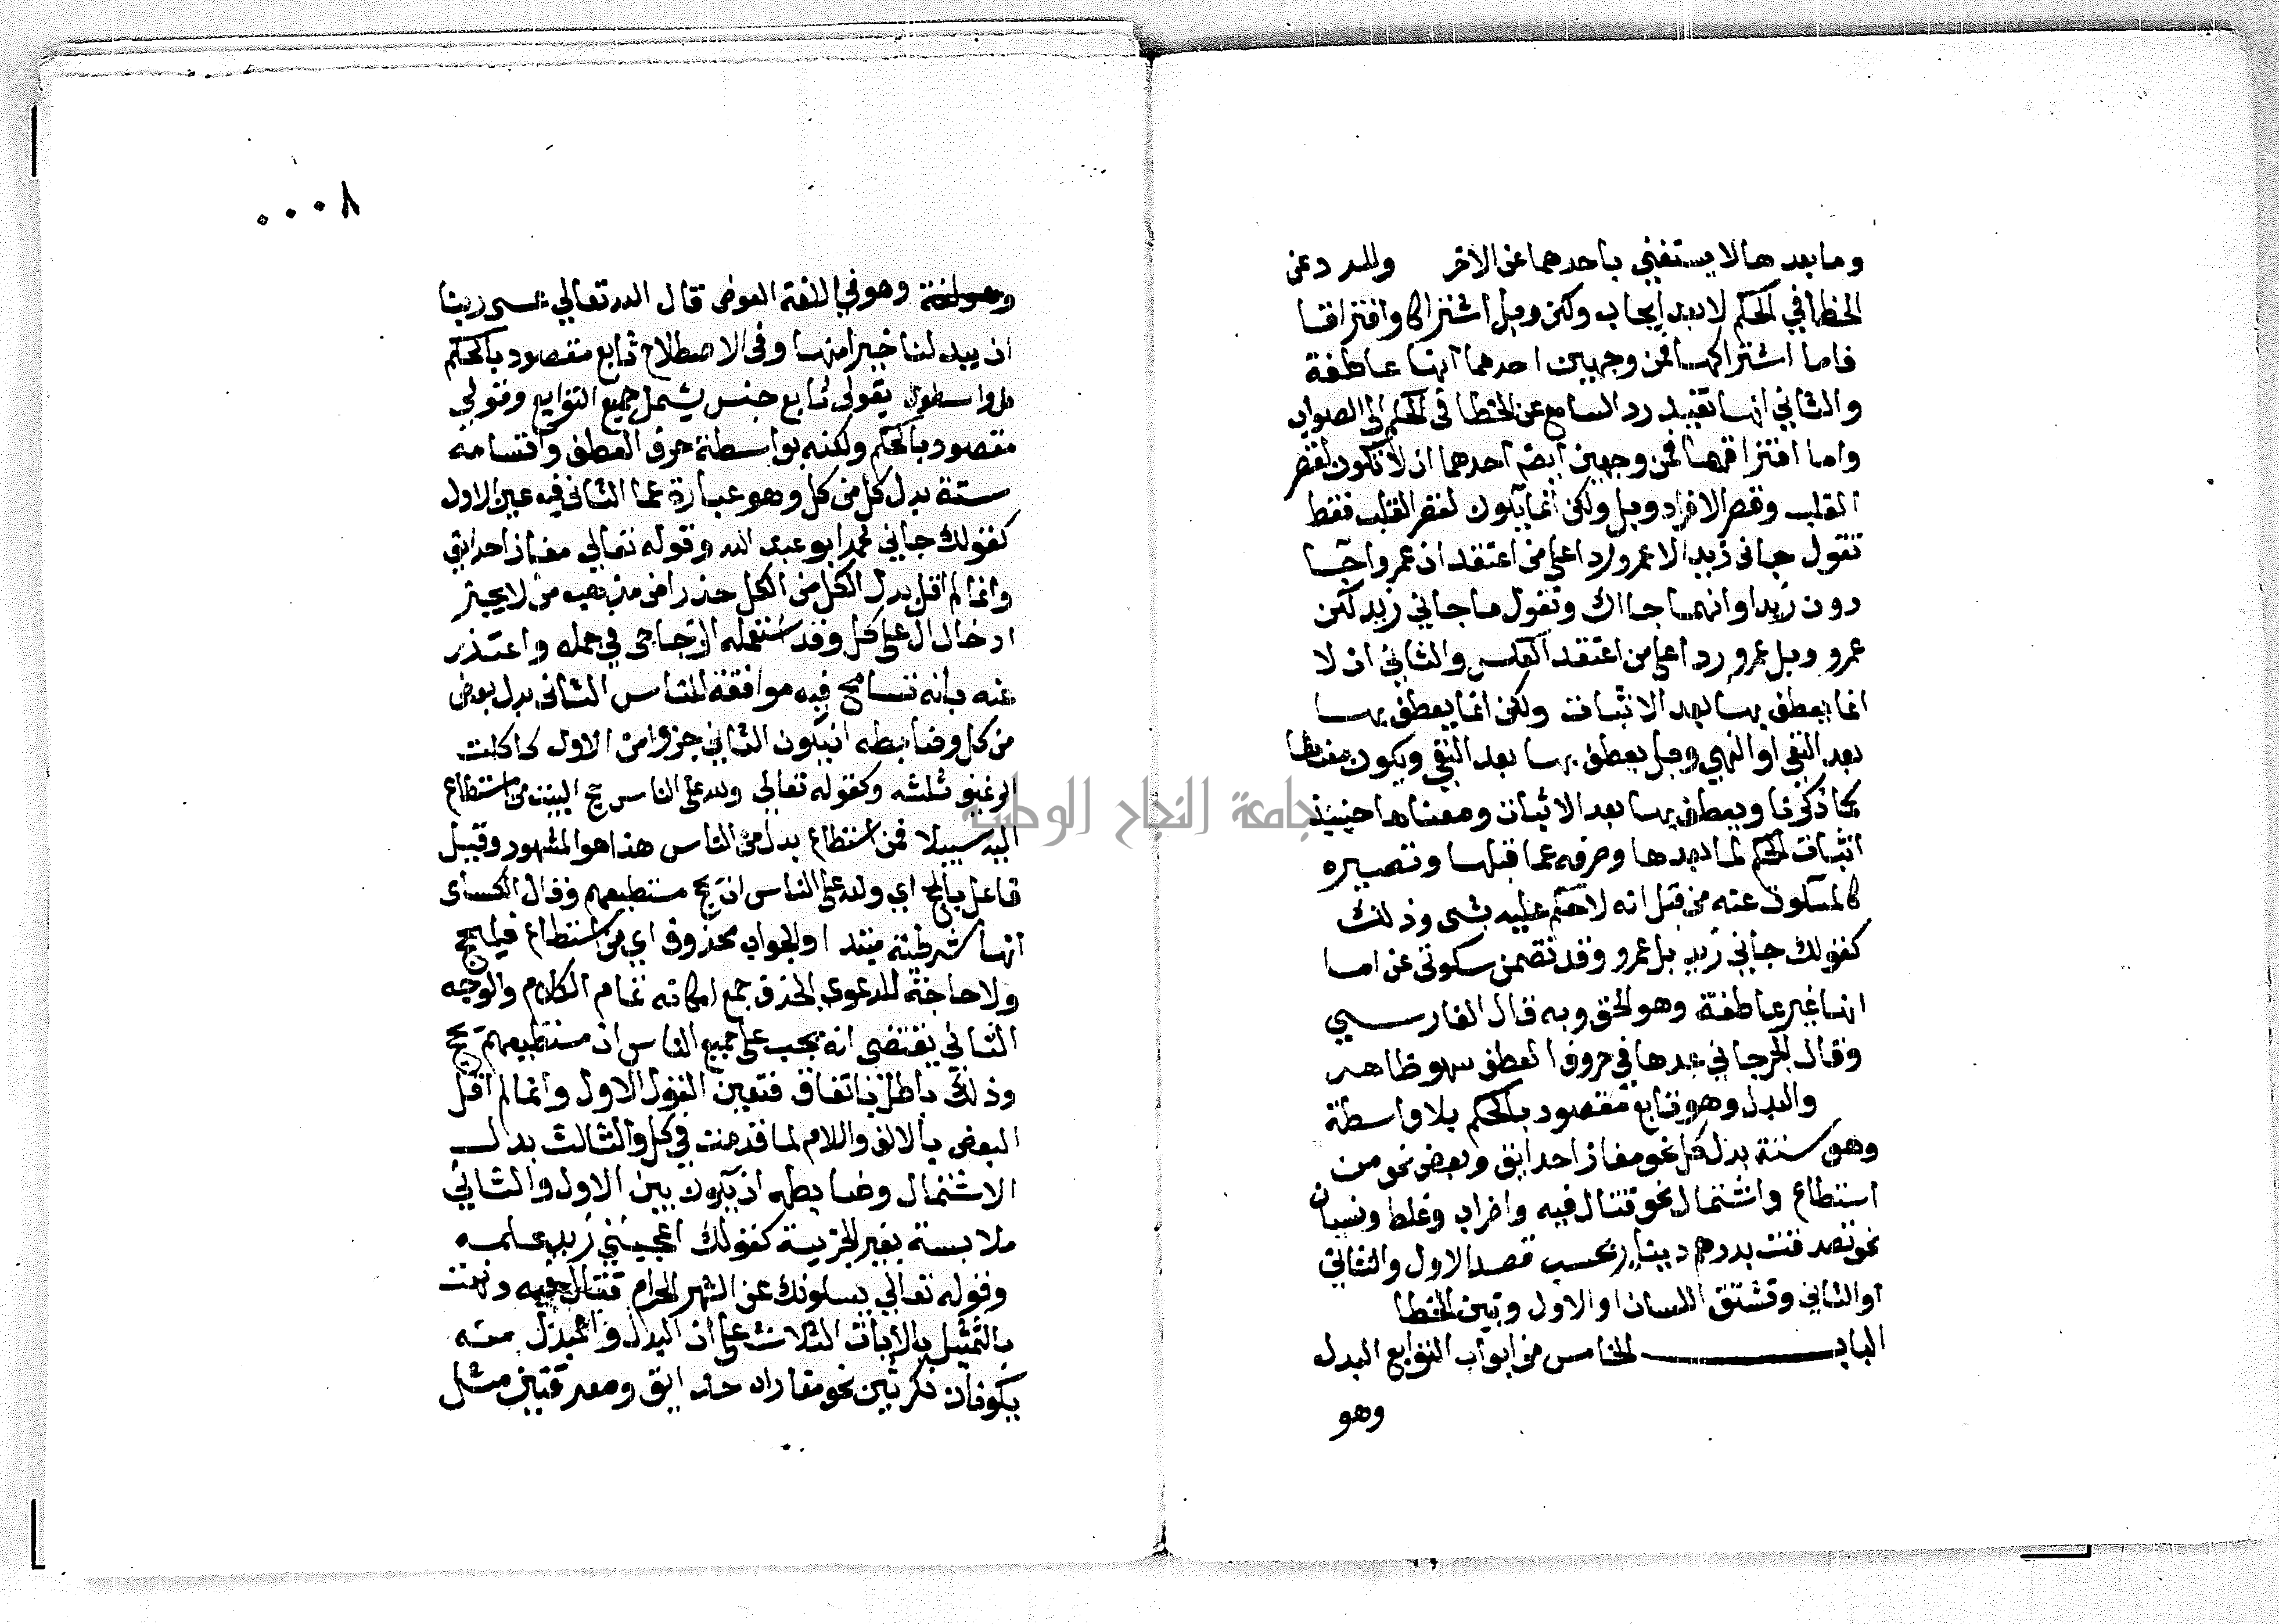 وما بعدها لا يستغني باحدهما عن الاخر وللرد عن
الخطا في الحكم لا بعد ايجاب ولكن وبل اشتراكا وافتراقا
فاما اشتراكها فمن وجهين احدهما انها عاطفة
والثاني انها تفيد رد السامع عن الخطا في الحكم الي الصواب
واما افتراقها فمن وجهين ايضا احدهما ان لا تكون لقصر
القلب وقصر الافراد وبل ولكن انما يكون لقصر القلب فقط
تقول جاني زيد لا عمرو ردا علي من اعتقد ان عمروا جا
دون زيد او انهما جااك وتقول ما جاني زيد لكن
عمرو وبل عمرو ردا علي من اعتقد العكس والثاني ان لا
انما يعطف بها بعد الاثبات ولكن انما يعطف بها
بعد النفي او النهي وبل يعطف بها بعد النفي ويكون معناها
كما ذكرنا ويعطف بها بعد الاثبات ومعناها حينيذ
اثبات الحكم لما بعدها وصرفه عما قبلها وتصييره
كالمسكون عنه من قبل انه لا حكم عليه بشي وذلك
كقولك جاني زيد بل عمرو وقد تضمن سكوتي عن اما
انها غير عاطفة وهو الحق وبه قال الفارسي
وقال الجرجاني عدها في حروف العطف سهو ظاهر
والبدل وهو تابع مقصود بالحكم بلا واسطة
وهو ستة بدل كل نحو مفازا حدايق وبعض نحو من
استطاع واشتمال نحو قتال فيه واضراب وغلط ونسيان
نحو تصدقت بدرهم دينار بحسب قصد الاول والثاني
او الثاني وتشتق اللسان او الاول وتبين الخطا
الباب الخامس من ابواب التوابع البدل
وهو
٠٠٠٨
وهو لغة وهو في اللغة العوض قال الله تعالي عسي ربنا
ان يبدلنا خيرا منها وفي الاصطلاح تابع مقصود بالحكم
بلا واسطة بقولي تابع جنس يشمل جميع التوابع وقولي
مقصود بالحكم ولكنه بواسطة حرف العطف واقسامه
ستة بدل كل من كل وهو عبارة عما الثاني فيه عين الاول
كقولك جاني محمد ابو عبد الله وقوله تعالي مفازا حدايق
وانما لم اقل بدل الكل من الكل حذرا من مذهب من لا يجيز
ادخال ال علي كل وقد استعمله الزجاجي في جمله واعتذر
عنه بانه تسامح فيه موافقة للناس الثاني بدل بعض
من كل وضابطه ان يكون الثاني جزوا من الاول كاكلت
الرغيف ثلثه وكقوله تعالي ولله علي الناس حج البيت من استطاع
اليه سبيلا فمن استطاع بدل من الناس هذا هو المشهور وقيل
فاعل بالحج اي ولله علي الناس ان يحج مستطيعهم وقال الكساي
انها شرطية مبتدا والجواب محذوف اي من استطاع فليحج
ولا حاجة للدعوي الحذف مع امكانه تمام الكلام والوجه
الثاني يقتضي انه يجب علي جميع الناس ان مستطيعهم يحج
وذلك باطل باتفاق فتعين القول الاول وانما لم اقل
البعض بالالف واللام لما قدمت في كل والثالث بدل
الاشتمال وضابطه ان يكون بين الاول والثاني
ملابسة بغير الجزيية كقولك اعجبني زيد علمه
وقوله تعالي يسلونك عن الشهر الحرام قتال فيه ونهت
بالتمثيل بالايات الثلاث علي ان البدل والمبدل منه
يكونان نكرتين نحو مفازا حدايق ومعرفتين مثل
جامعة النجاح الوطنية